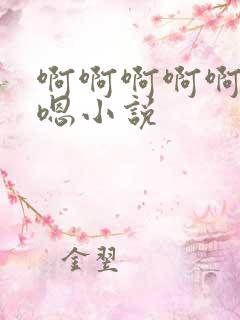 啊啊啊啊啊
嗯小说
金翌